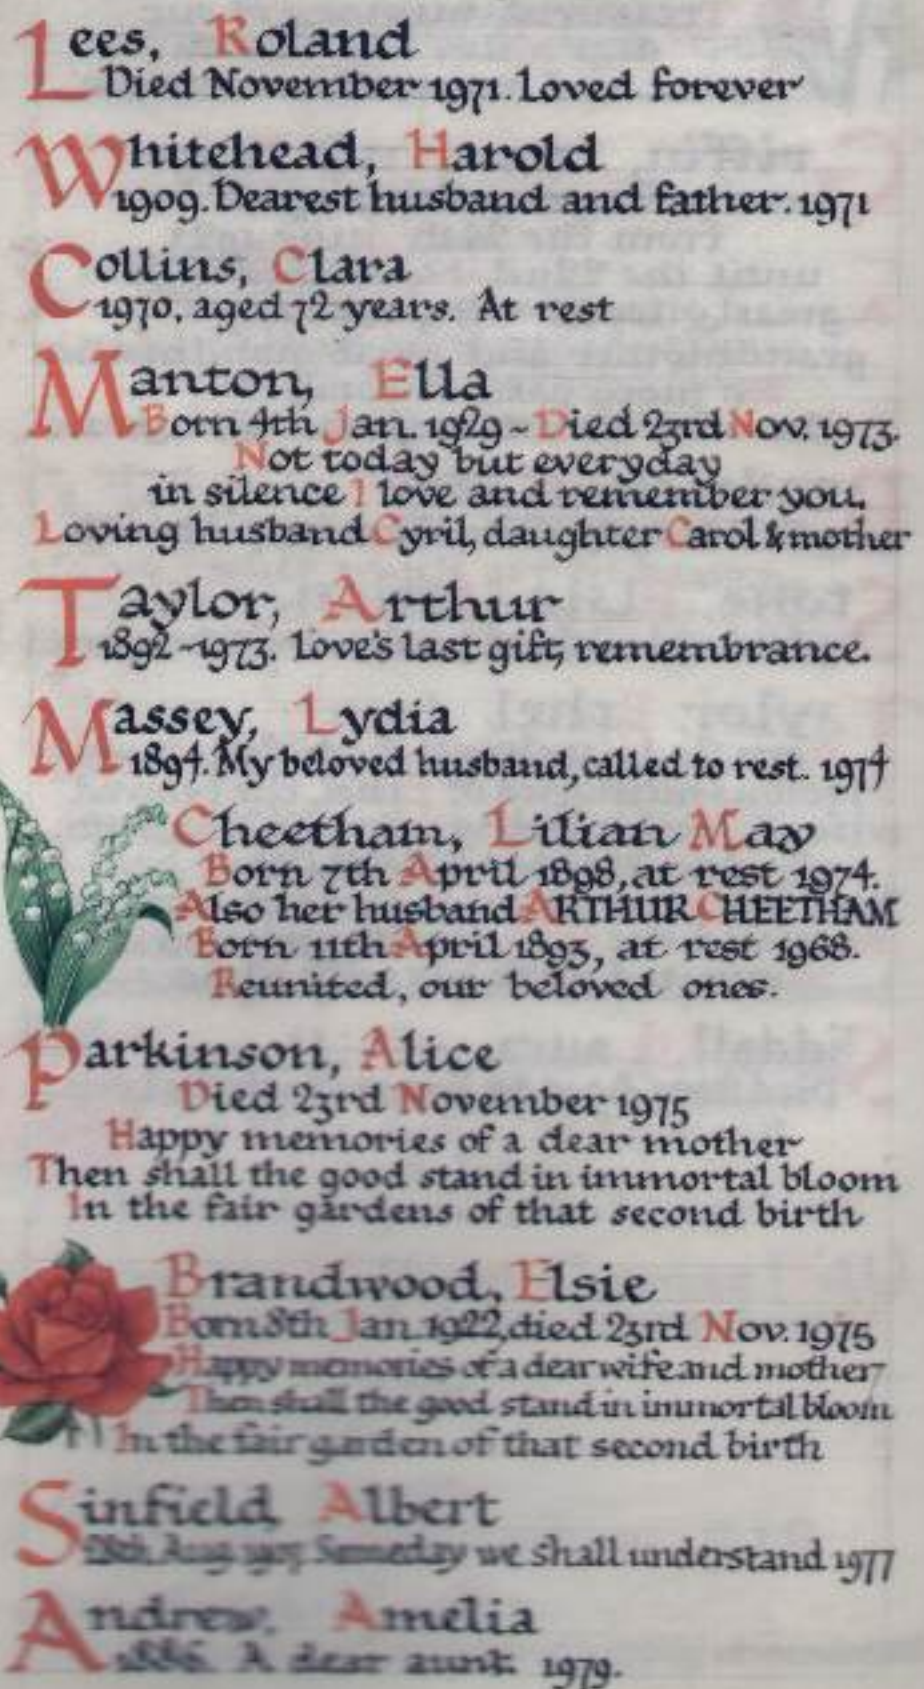 Lees, Roland
Died November 1971. Loved forever
Whitehead, Harold
1909. Dearest husband and father. 1971
Collins, Clara
1970, aged 72 years. At rest
Manton, Ella
Born 4th Jan. 1929 ~ Died 23rd Nov. 1973.
Not today but everyday
in silence I love and remember you.
Loving husband Cyril, daughter Carol & mother
Taylor, Arthur
1892-1973. Love's last gift, remembrance.
Massey, Lydia
1894. My beloved husband, called to rest. 1974
Cheetham, Lilian May
Born 7th April 1898, at rest 1974.
Also her husband ARTHUR CHEETHAM
Born 11th April 1893, at rest 1968.
Reunited, our beloved ones.
Parkinson, Alice
Died 23rd November 1975
Happy memories of a dear mother
Then shall the good stand in immortal bloom
In the fair gardens of that second birth
Brandwood, Elsie
Born 8th Jan. 1922, died 23rd Nov. 1975
Happy memories of a dear wife and mother
Then shall the good stand in immortal bloom
In the fair garden of that second birth
Sinfield Albert
28th Aug. Someday we shall understand 1977
Andrew, Amelia
1886. A dear aunt. 1979.